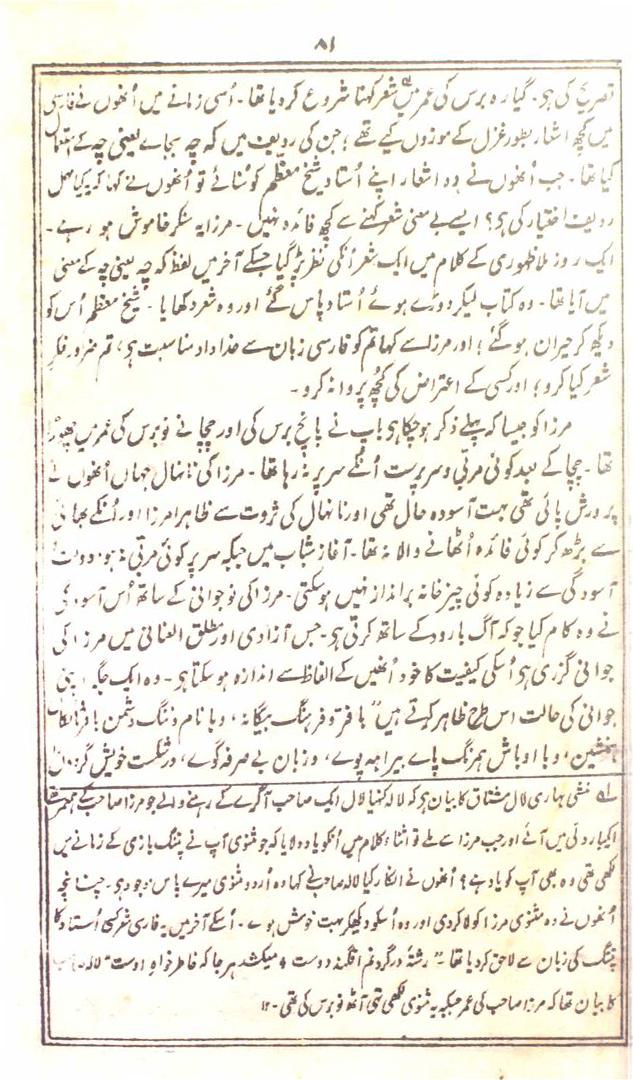 ۸۱
تصریح کی ہی۔ گیارہ برس کی عمر میں شعر کہنا شروع کر دیا تھا۔ اُسی زمانے میں اُنھوں نے فارسی
میں کچھ اشعار بطور غزل کے موزوں کیے تھے؛ جن کی ردیف میں کہ چہ بجاے یعنی چہ کے استعمال
کیا تھا۔ جب اُنھوں نے وہ اشعار اپنے اُستاد شیخ معظم کو سُنائے تو اُنھوں نے کہا کہ یہ کیا مہمل
ردیف اختیار کی ہی؟ ایسے بے معنی شعر کہنے سے کچھ فائدہ نہیں۔ مرزا یہ سنکر خاموش ہو رہے۔
ایک روز ملا ظہوری کے کلام میں ایک شعر اُنکی نظر پڑ گیا جسکے آخر میں لفظ کہ چہ یعنی چہ کے معنی
میں آیا تھا۔ وہ کتاب لیکر دوڑے ہوئے اُستاد پاس گئے اور وہ شعر دکھایا۔ شیخ معظم اُس کو
دیکھ کر حیران ہو گئے؛ اور مرزا سے کہا تم کو فارسی زبان سے خداداد مناسبت ہی، تم ضرور فکرِ
شعر کیا کرو؛ اور کسی کے اعتراض کی کچھ پروا نہ کرو۔
مرزا کو جیسا کہ پہلے ذکر ہو چکا ہی باپ نے پانچ برس کی اور چچا نے نو برس کی عمر میں چھوڑا
تھا۔ چچا کے بعد کوئی مربّی و سرپرست اُنکے سر پر نہ رہا تھا۔ مرزا کی ننہال جہاں اُنھوں نے
پرورش پائی تھی بہت آسودہ حال تھی اور نانہال کی ثروت سے ظاہرا مرزا اور اُنکے بھائی
سے بڑھ کر کوئی فائدہ اُٹھانے والا نہ تھا۔ آغازِ شباب میں جبکہ سر پر کوئی مربّی نہ ہو، دولت
آسودگی سے زیادہ کوئی چیز خانہ برانداز نہیں ہو سکتی۔ مرزا کی نوجوانی کے ساتھ اُس آسودگی
نے وہ کام کیا جو کہ آگ بارود کے ساتھ کرتی ہی۔ جس آزادی اور مطلق العنانی میں مرزا کی
جوانی گزری ہی اُسکی کیفیت کا خود اُنھیں کے الفاظ سے اندازہ ہو سکتا ہی۔ وہ ایک جگہ اپنی
جوانی کی حالت اس طرح ظاہر کرتے ہیں "با فرّ و فرہنگ بیگانہ، و با نام و ننگ دشمن با فرومایگاں
ہمنشین، و با اوباش ہمرنگ پاے بیراہہ پوے، و زبان بے صرفہ گوے، در شکست خویش گردوں را
لہ منشی بہاری لال مشتاق کا بیان ہی کہ لالہ کنہیا لال ایک صاحب آگرے کے رہنے والے جو مرزا صاحب کے ہمعمر تھے
ایکبار دلی میں آئے اور جب مرزا سے ملے تو اثناء کلام میں اُنکو یاد دلایا کہ جو مثنوی آپ نے پتنگ بازی کے زمانے میں
لکھی تھی وہ بھی آپ کو یاد ہے؟ اُنھوں نے انکار کیا لالہ صاحب نے کہا وہ اُردو مثنوی میرے پاس موجود ہی۔ چنانچہ
اُنھوں نے وہ مثنوی مرزا کو لا کر دی اور وہ اُسکو دیکھکر بہت خوش ہوے۔ اُسکے آخر میں یہ فارسی شعر کسی اُستاد کا
پتنگ کی زبان سے لاحق کر دیا تھا۔ "رشتۂ درگردنم افگندہ دوست ٭ میکشد ہر جا کہ خاطر خواہِ اوست" لالہ صاحب
کا بیان تھا کہ مرزا صاحب کی عمر جبکہ یہ مثنوی لکھی تھی آٹھ نو برس کی تھی۔ ۱۲